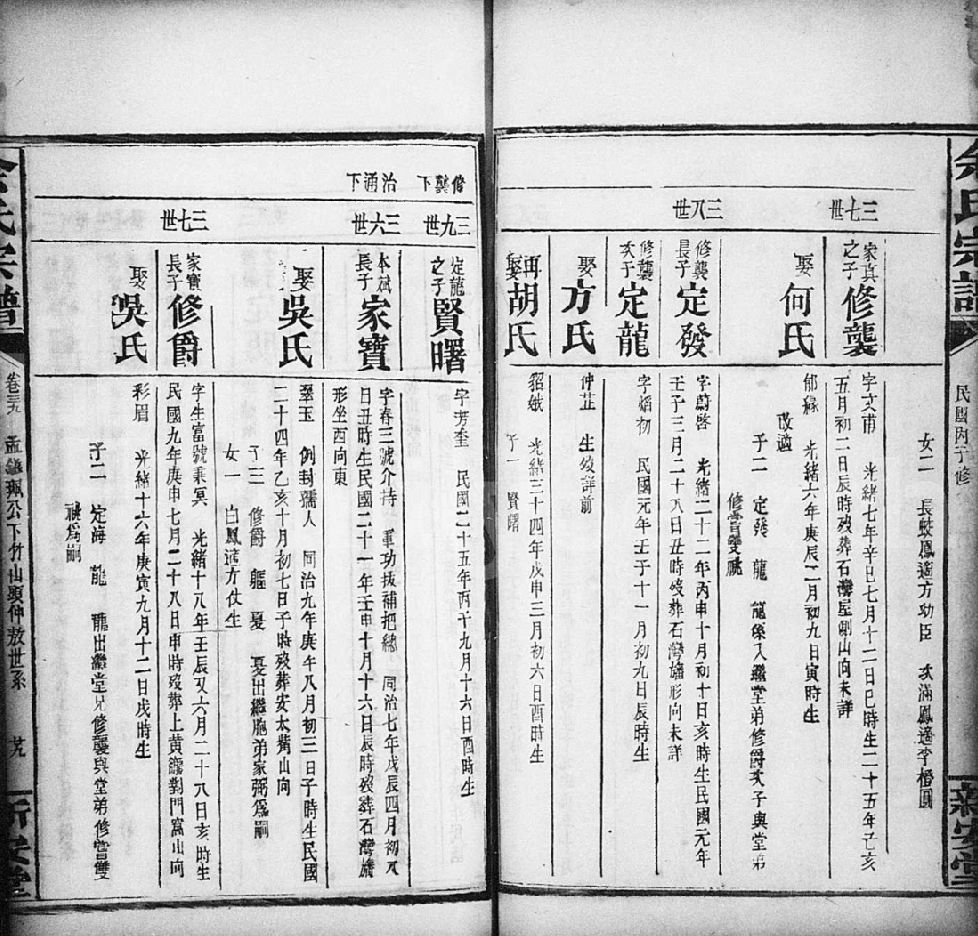 余氏宗譜
民國丙子修
新安堂
女二　長蛟鳳適方功臣　次滿鳳適李橙圓
三七世
家真之子
修龔
字文甫　光緒七年辛巳七月十二日巳時生二十五年乙亥
五月初二日辰時歿葬石灣屋側山向未詳
娶何氏
郁緣　光緒六年庚辰二月初九日寅時生
改適
子二　定發　龍　龍係入繼堂弟修爵次子與堂弟
修富雙祧
三八世
修龔長子
定發
字蔚啓　光緒二十二年丙申十月初十日亥時生民國元年
壬子三月二十八日丑時歿葬石灣 形向未詳
修龔次子
定龍
字 初　民國元年壬子十一月初九日辰時生
娶方氏
仲芷　生歿詳前
再娶胡氏
貂娥　光緒三十四年戊申三月初六日酉時生
子一　賢曙
修龔下
三九世
定龍之子
賢曙
字芳奎　民國二十五年丙子九月十六日酉時生
治湧下
三六世
本斌長子
家寶
字春三號介持　軍功拔補把總　同治七年戊辰四月初八
日丑時生民國二十一年壬申十月十六日辰時歿葬石灣
形坐西向東
娶吳氏
翠玉　例封孺人　同治九年庚午八月初三日子時生民國
二十四年乙亥十月初七日子時歿葬安太 山向
子三　修爵　 　夏　夏出繼胞弟家弼爲嗣
女一　白鳳適方伙生
三七世
家寶長子
修爵
字生富號秉冥　光緒十八年壬辰又六月二十八日亥時生
民國九年庚申七月二十八日申時歿葬上黃 對門富山向
娶吳氏
彩眉　光緒十六年庚寅九月十二日戌時生
子二　定海　龍　龍出繼堂兄修龔與堂弟修富雙
祧爲嗣
余氏宗譜
卷三九　孟 珮公下竹山頭仲敖世系
新安堂